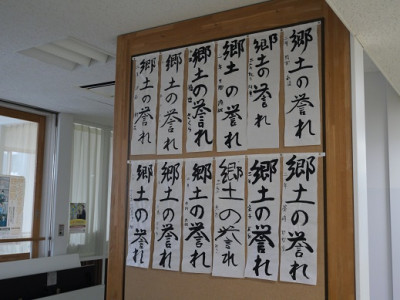 郷土の誉れ
郷土の誉れ
郷土の誉れ
郷土の誉れ
郷土の誉れ
郷土の誉れ
郷土の誉れ
郷土の誉れ
郷土の誉れ
郷土の誉れ
郷土の誉れ
郷土の誉れ